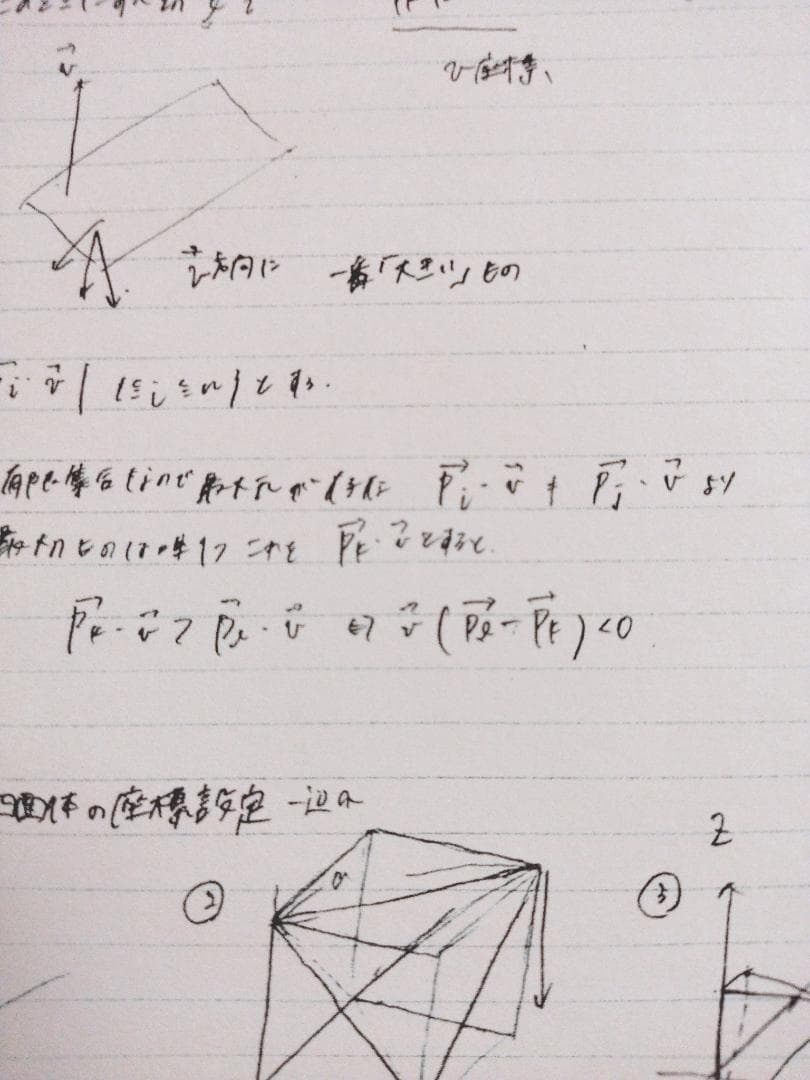 v座標、
v⃗
v⃗方向に 一番「大きい」もの
i・v⃗ | 1≦i≦n}とする.
有限集合なので最大元が存在 p⃗i・v⃗ ≠ p⃗j・v⃗ より
最大のものは唯1つ これを p⃗k・v⃗とすると.
p⃗k・v⃗ > p⃗l・v⃗ ⇔ v⃗(p⃗l−p⃗k)<0
四面体の座標設定 一辺a
②
a
③
Z